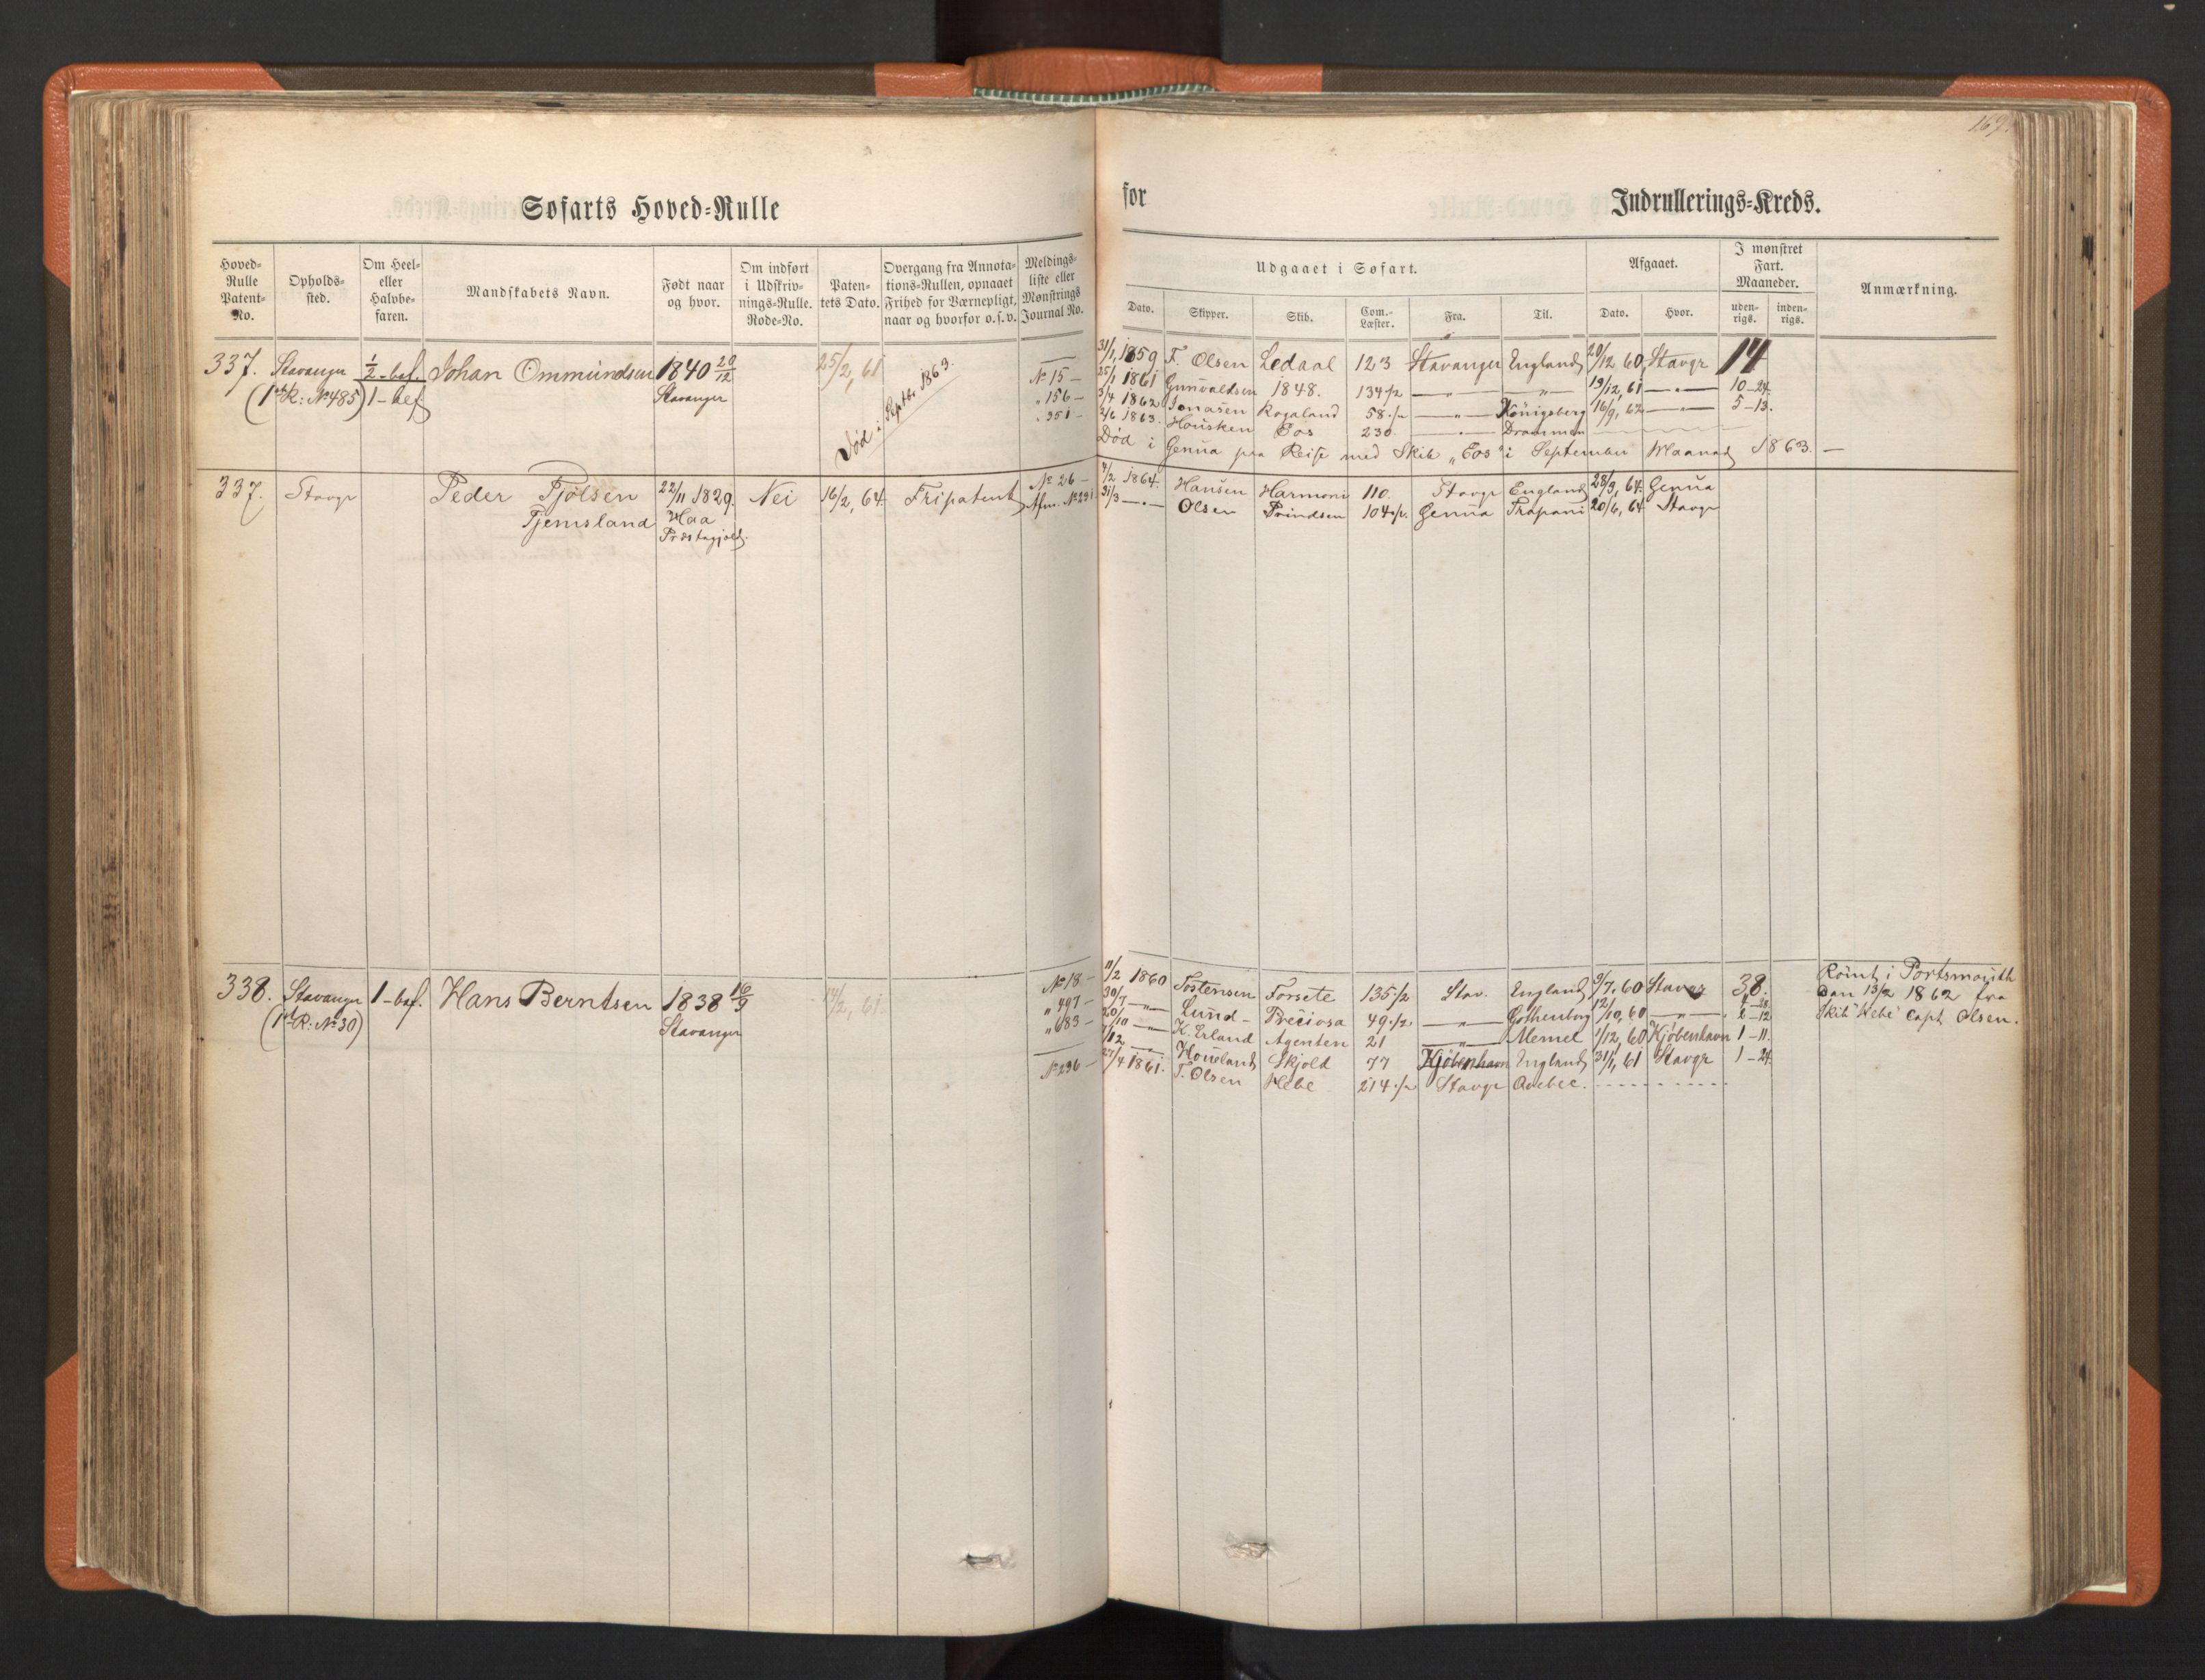 169.
Søfarts Hoved-Rulle
for Indrullerings-Kreds.
Hoved-Rulle Patent-No.
Opholds-sted.
Om Heel- eller Halvbe-faren.
Mandskabets Navn.
Født naar og hvor.
Om indført i Udskriv-nings-Rulle. Rode-No.
Paten-tets Dato.
Overgang fra Annota-tions-Rullen, opnaaet Frihed for Værnepligt, naar og hvorfor o.s.v.
Meldings-liste eller Mønstrings Journal No.
Udgaaet i Søfart.
Dato. Skipper. Skib. Com.-Læster. Fra. Til.
Afgaaet.
Dato. Hvor.
I mønstret Fart. Maaneder.
uden-rigs. inden-rigs.
Anmærkning.
337. Stavanger 1/2-bef. Johan Ommundsen 1840 20/12 25/2, 61 — 31/1, 1859 F. Olsen Ledaal 123 Stavanger England 20/12 60, Stavgr 14
(1ste R: № 485) 1-bef Stavanger № 15 — 25/1 1861 Gunvaldsen 1848. 134 1/2 —"— —"— 19/12, 61 —"— 10-24.
Død i Septbr 1863.
" 156 — 3/4 1862 Jonasen Rogaland 58 1/2 —"— Königsberg 16/9, 62 —"— 5-13.
" 351 — 2/6 1863. Housken Eos 230 —"— Drammen
Død i Genua paa Reise med Skib "Eos" i September Maaned 1863. —
337. Stavgr Peder Tjølsen 22/11 1829. Nei 16/2, 64. Fripatent № 26 — 9/2 1864. Hansen Harmoni 110. Stavgr England 28/3, 64. Genua
Tjemsland Haa Afm. № 231 31/3 —"— Olsen Prindsen 104 1/2 Genua Trapani 20/6, 64 Stavgr
Præstegjeld.
338. Stavanger 1-bef. Hans Berntsen 1838 16/9 14/2, 61. № 18 — 11/2 1860 Tostensen Forsete 135 1/2 Stav. England 9/7, 60 Stavgr 38.
(1ste R: № 30) Stavanger " 497 — 30/7 —"— Lund — Preciosa 49 1/2 —"— Gothenborg 12/10, 60 —"— 2-12
" 683 — 20/10 —"— K. Erland Agenten 21 —"— Memel 1/12, 60 Kjøbenhavn 1-11.
— 7/12 —"— Houeland Skjold 77 Kjøbenhavn England 31/1, 61 Stavgr 1-24.
№ 296 — 27/4 1861. T. Olsen Hebe 214 1/2 Stavgr Quebec.
Rømt i Portsmouth
den 13/2 1862 fra
Skib "Hebe" Capt Olsen.